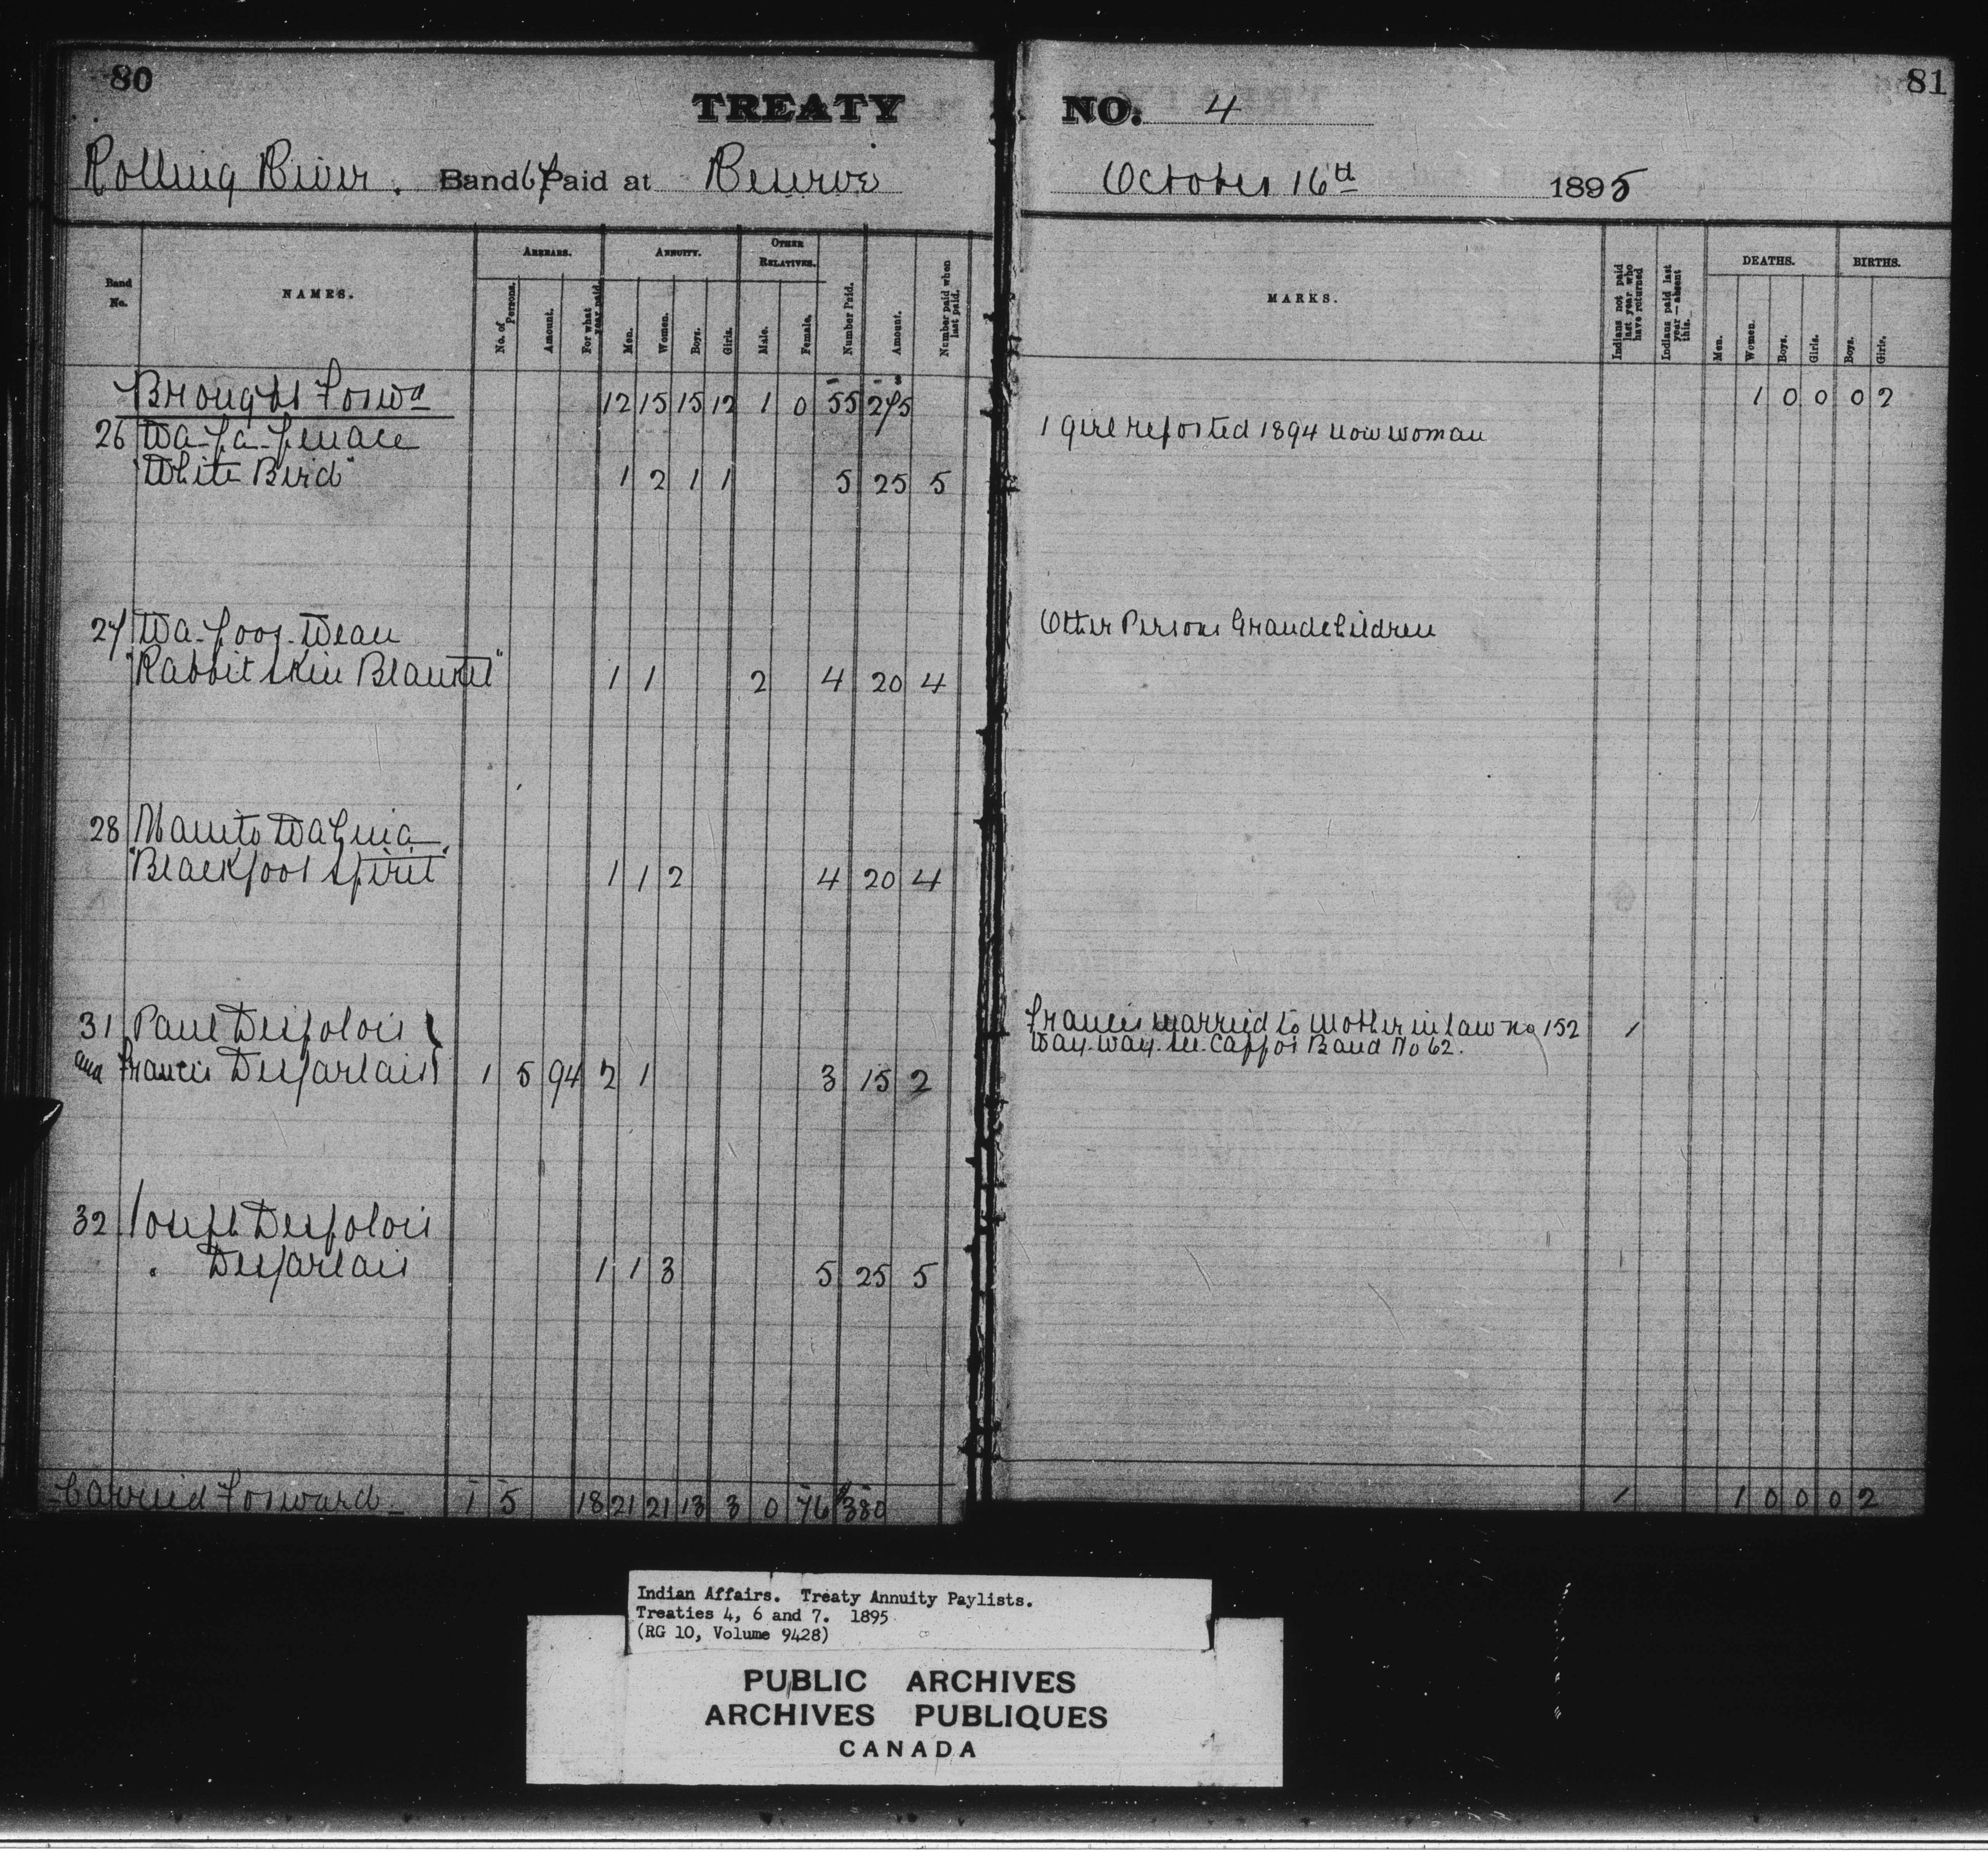 80
TREATY
Rolling River. Band 67 Paid at Reserve
Band No.
NAMES.
ARREARS.
No. of Persons.
Amount.
For what year paid.
ANNUITY.
Men.
Women.
Boys.
Girls.
OTHER RELATIVES.
Male.
Female.
Number Paid.
Amount.
Number paid when last paid.
Brought Forwd 12 15 15 12 1 0 55 275
26 Wa-pa-penace
"White Bird" 1 2 1 1 5 25 5
27 Wa-poos-Wean
"Rabbit skin Blanket" 1 1 2 4 20 4
28 Manito
"Blackfoot Spirit" 1 1 2 4 20 4
31 Paul Desjolois
and Francis Desjarlais 1 5 94 2 1 3 15 2
32 Joseph Desjolois
" Desjarlais 1 1 3 5 25 5
Carried Forward 1 5 18 21 21 13 3 0 76 $380
81
NO. 4
October 16th 1895
MARKS.
Indians not paid last year who have returned
Indians paid last year—absent this.
DEATHS.
Men.
Women.
Boys.
Girls.
BIRTHS.
Boys.
Girls.
1 0 0 0 2
1 girl reported 1894 now woman
Other Persons Grandchildren
Francis married to Mother in law no 152 1
Way. Way. see. Cappos Band No 62.
1 1 0 0 0 2
Indian Affairs. Treaty Annuity Paylists.
Treaties 4, 6 and 7. 1895
(RG 10, Volume 9428)
PUBLIC ARCHIVES
ARCHIVES PUBLIQUES
CANADA